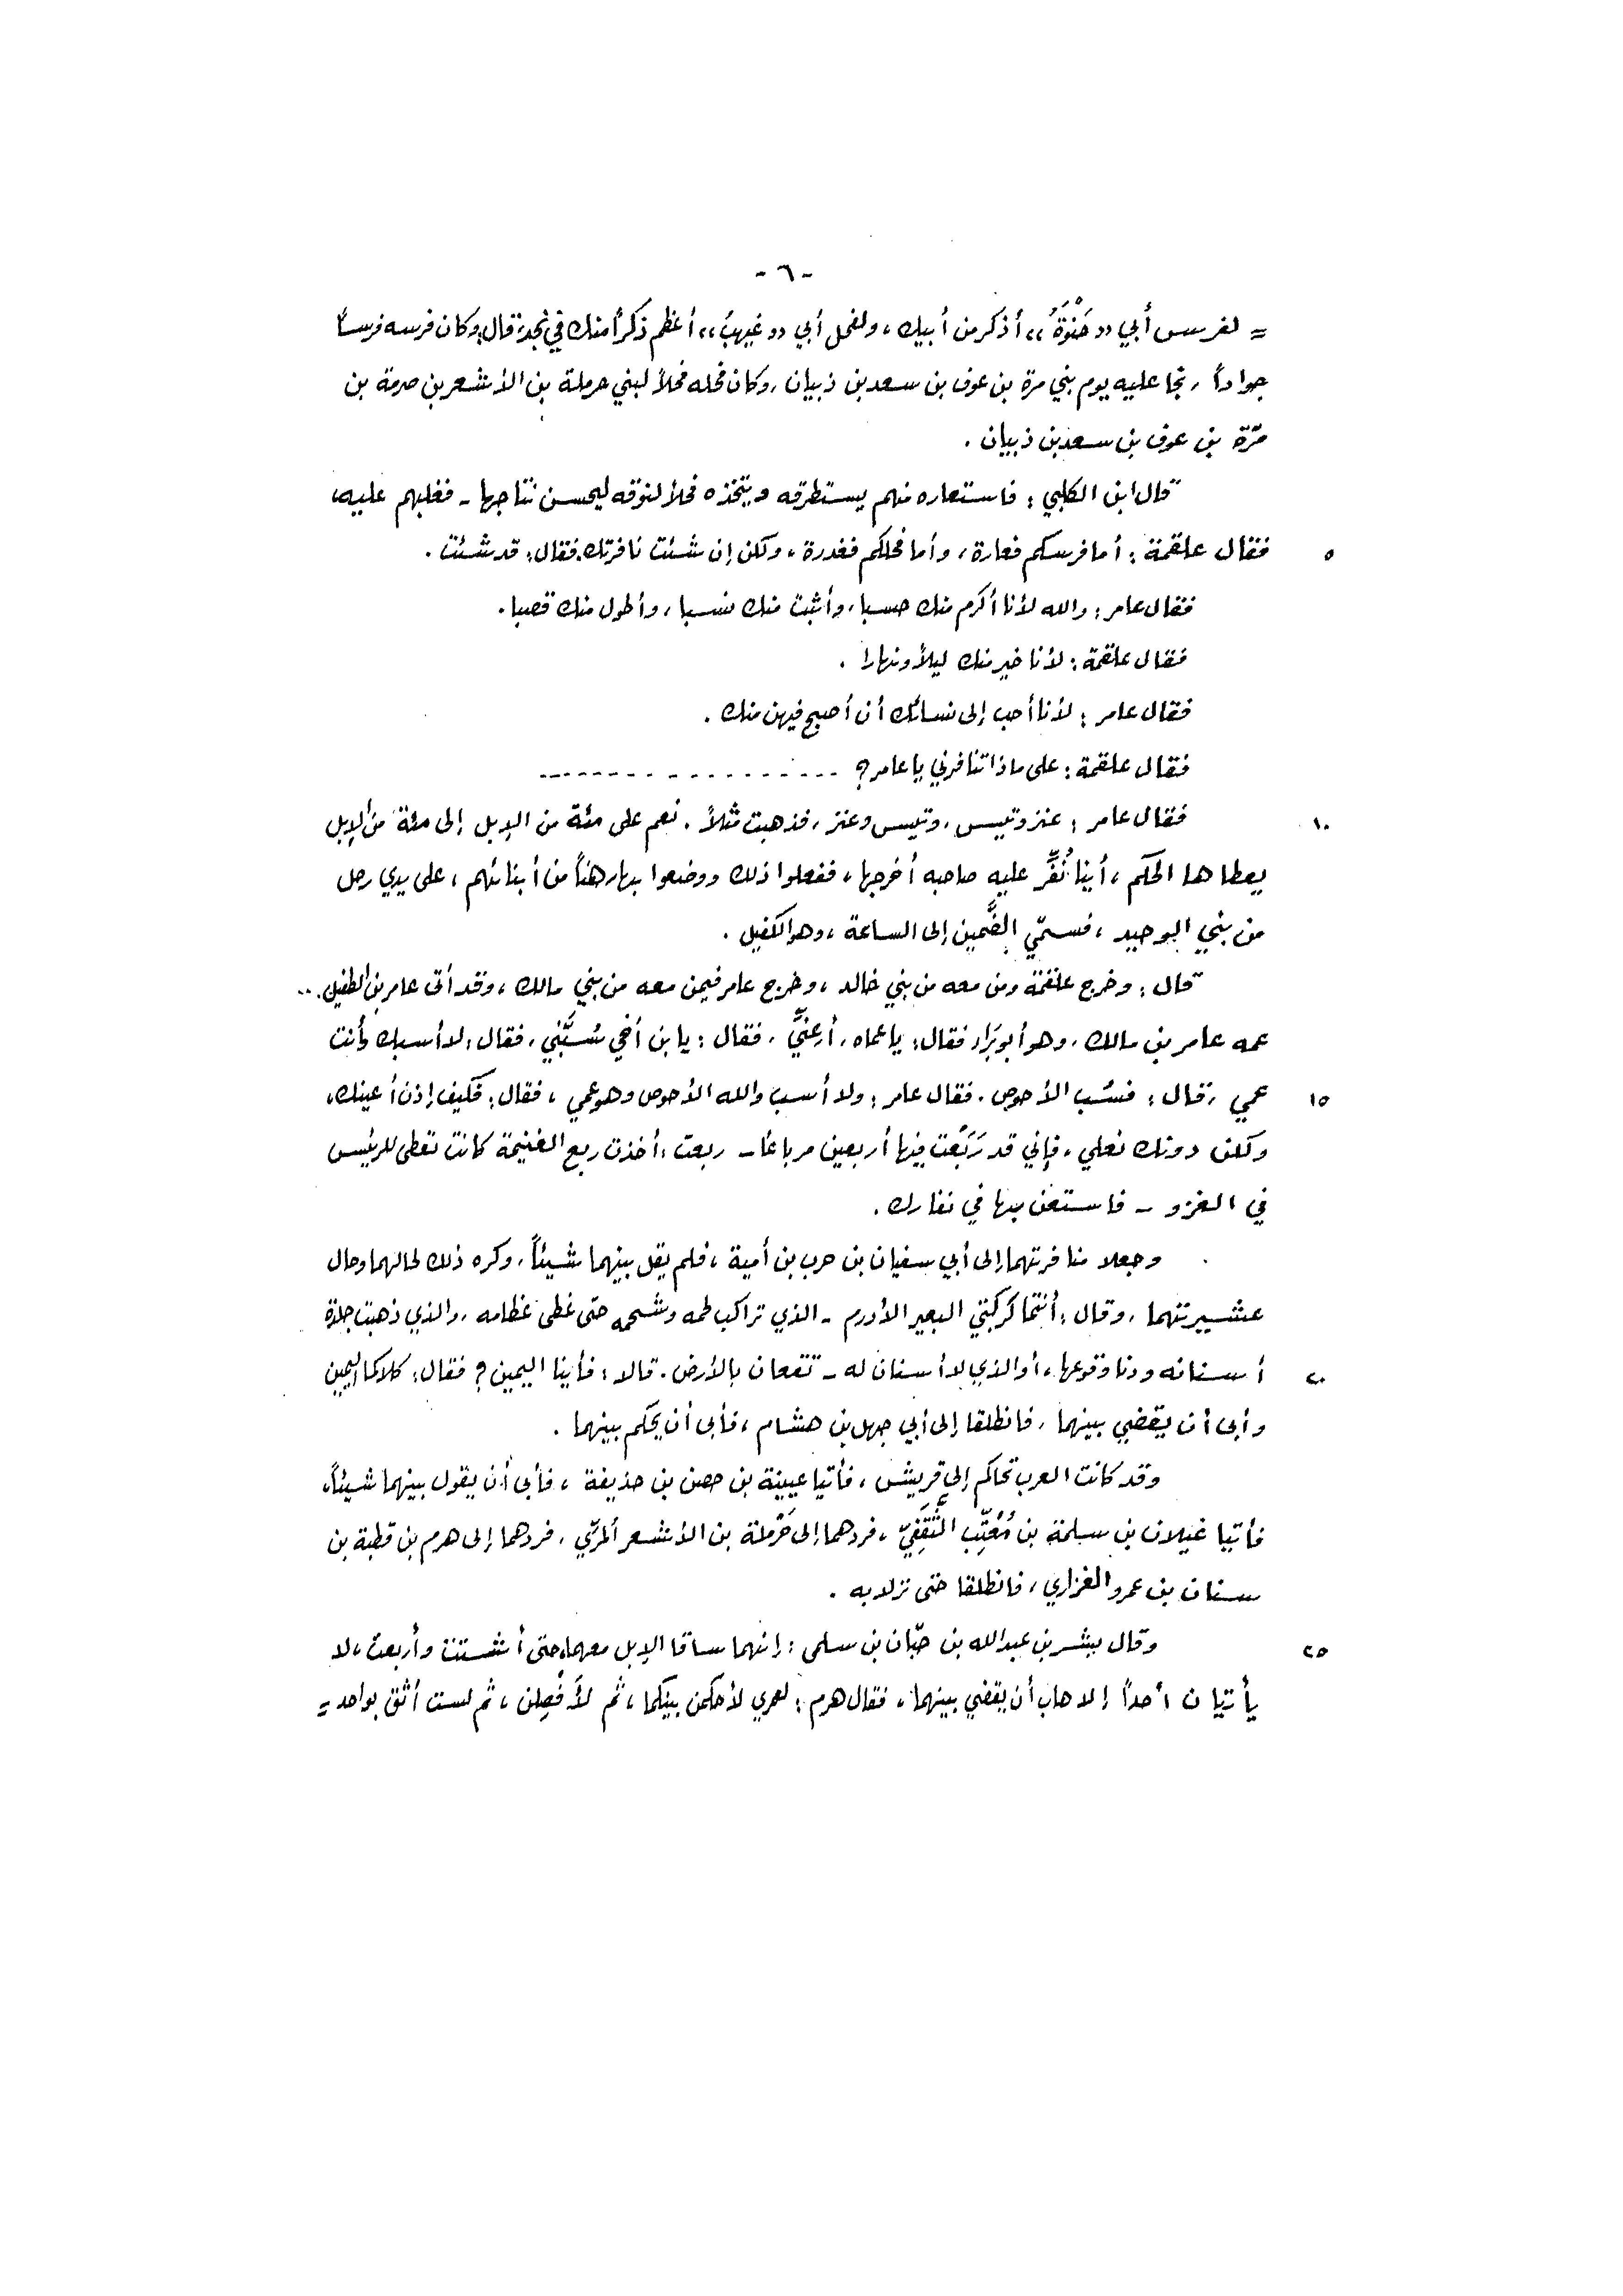 - ٦ -
= لفرس أبي ،،حَنْوَةُ،، أذكر من أبيك، ولفحل أبي ،،غيهبُ،، أعظم ذكراً منك في نجد، قال: وكان فرسه فرساً
جواداً، نجا عليه يوم بني مرة بن عوف بن سعد بن ذبيان، وكان فحله فحلاً لبني حرملة بن الأشعر بن صرمة بن
مرّة بن عوف بن سعد بن ذبيان.
قال ابن الكلبي: فاستعاره منهم يستطرقه ويتخذه فحلاً لنوقه ليحسن نتاجها - فغلبهم عليه،
٥ فقال علقمة: أما فرسكم فعارة، وأما فحلكم فغدرة، ولكن إن شئت نافرتك، فقال: قد شئت.
فقال عامر: والله لأنا أكرم منك حسبا، وأثبت منك نسبا، وأطول منك قصبا.
فقال علقمة: لأنا خير منك ليلاً ونهارا.
فقال عامر: لأنا أحب إلى نسائك أن أصبح فيهن منك.
فقال علقمة: على ماذا تنافرني يا عامر؟ - - - - - - - - - - - - - - - - -
١٠ فقال عامر: عنز وتيس، وتيس وعنز، فذهبت مثلاً. نعم على مئة من الإبل إلى مئة من الإبل
يعطاها الحكم، أينا نُفِّر عليه صاحبه أخرجها، ففعلوا ذلك ووضعوا بها رهناً من أبنائهم، على يدي رجل
من بني الوحيد، فسمّي الضَّمين إلى الساعة، وهو الكفيل.
قال: وخرج علقمة ومن معه من بني خالد، وخرج عامر فيمن معه من بني مالك، وقد أتى عامر بن الطفيل..
عمه عامر بن مالك، وهو أبو بَرَاء فقال: يا عماه، أعِنِّي، فقال: يا بن أخي سُبَّني، فقال: لا أسبك وأنت
١٥ عمي، قال: فسُب الأحوص. فقال عامر: ولا أسب والله الأحوص وهو عمي، فقال: فكيف إذن أعينك،
ولكن دونك نعلي، فإني قد رَبَعْت فيها أربعين مرباعًا - ربعت: أخذت ربع الغنيمة كانت تعطى للرئيس
في الغزو - فاستعن بها في نفارك.
وجعلا منافرتهما إلى أبي سفيان بن حرب بن أمية، فلم يقل بينهما شيئاً، وكره ذلك لحالهما وحال
عشيرتهما، وقال: أنتما كركبتي البعير الأدرم - الذي تراكب لحمه وشحمه حتى غطى عظامه، والذي ذهبت جلدة
٢٠ أسنانه ودنا وقوعها، أو الذي لا أسنان له - تقعان بالأرض. قالا: فأينا اليمين؟ فقال: كلاكما اليمين
وأبى أن يقضي بينهما، فانطلقا إلى أبي جهل بن هشام، فأبى أن يحكم بينهما.
وقد كانت العرب تحاكم إلى قريش، فأتيا عيينة بن حصن بن حذيفة، فأبى أن يقول بينهما شيئاً،
فأتيا غيلان بن سلمة بن مُعَتِّب الثَّقَفِيّ، فردهما إلى حَرْملة بن الأشعر المرّي، فردهما إلى هرم بن قطبة بن
سنان بن عمرو الفزاري، فانطلقا حتى نزلا به.
٢٥ وقال بشر بن عبدالله بن حبّان بن سلمى: إنهما ساقا الإبل معهما، حتى أشتت وأربعت، لا
يأتيان أحداً إلا هاب أن يقضي بينهما، فقال هرم: لعمري لأحكمن بينكما، ثم لأفصِلن، ثم لست أثق بواحد =